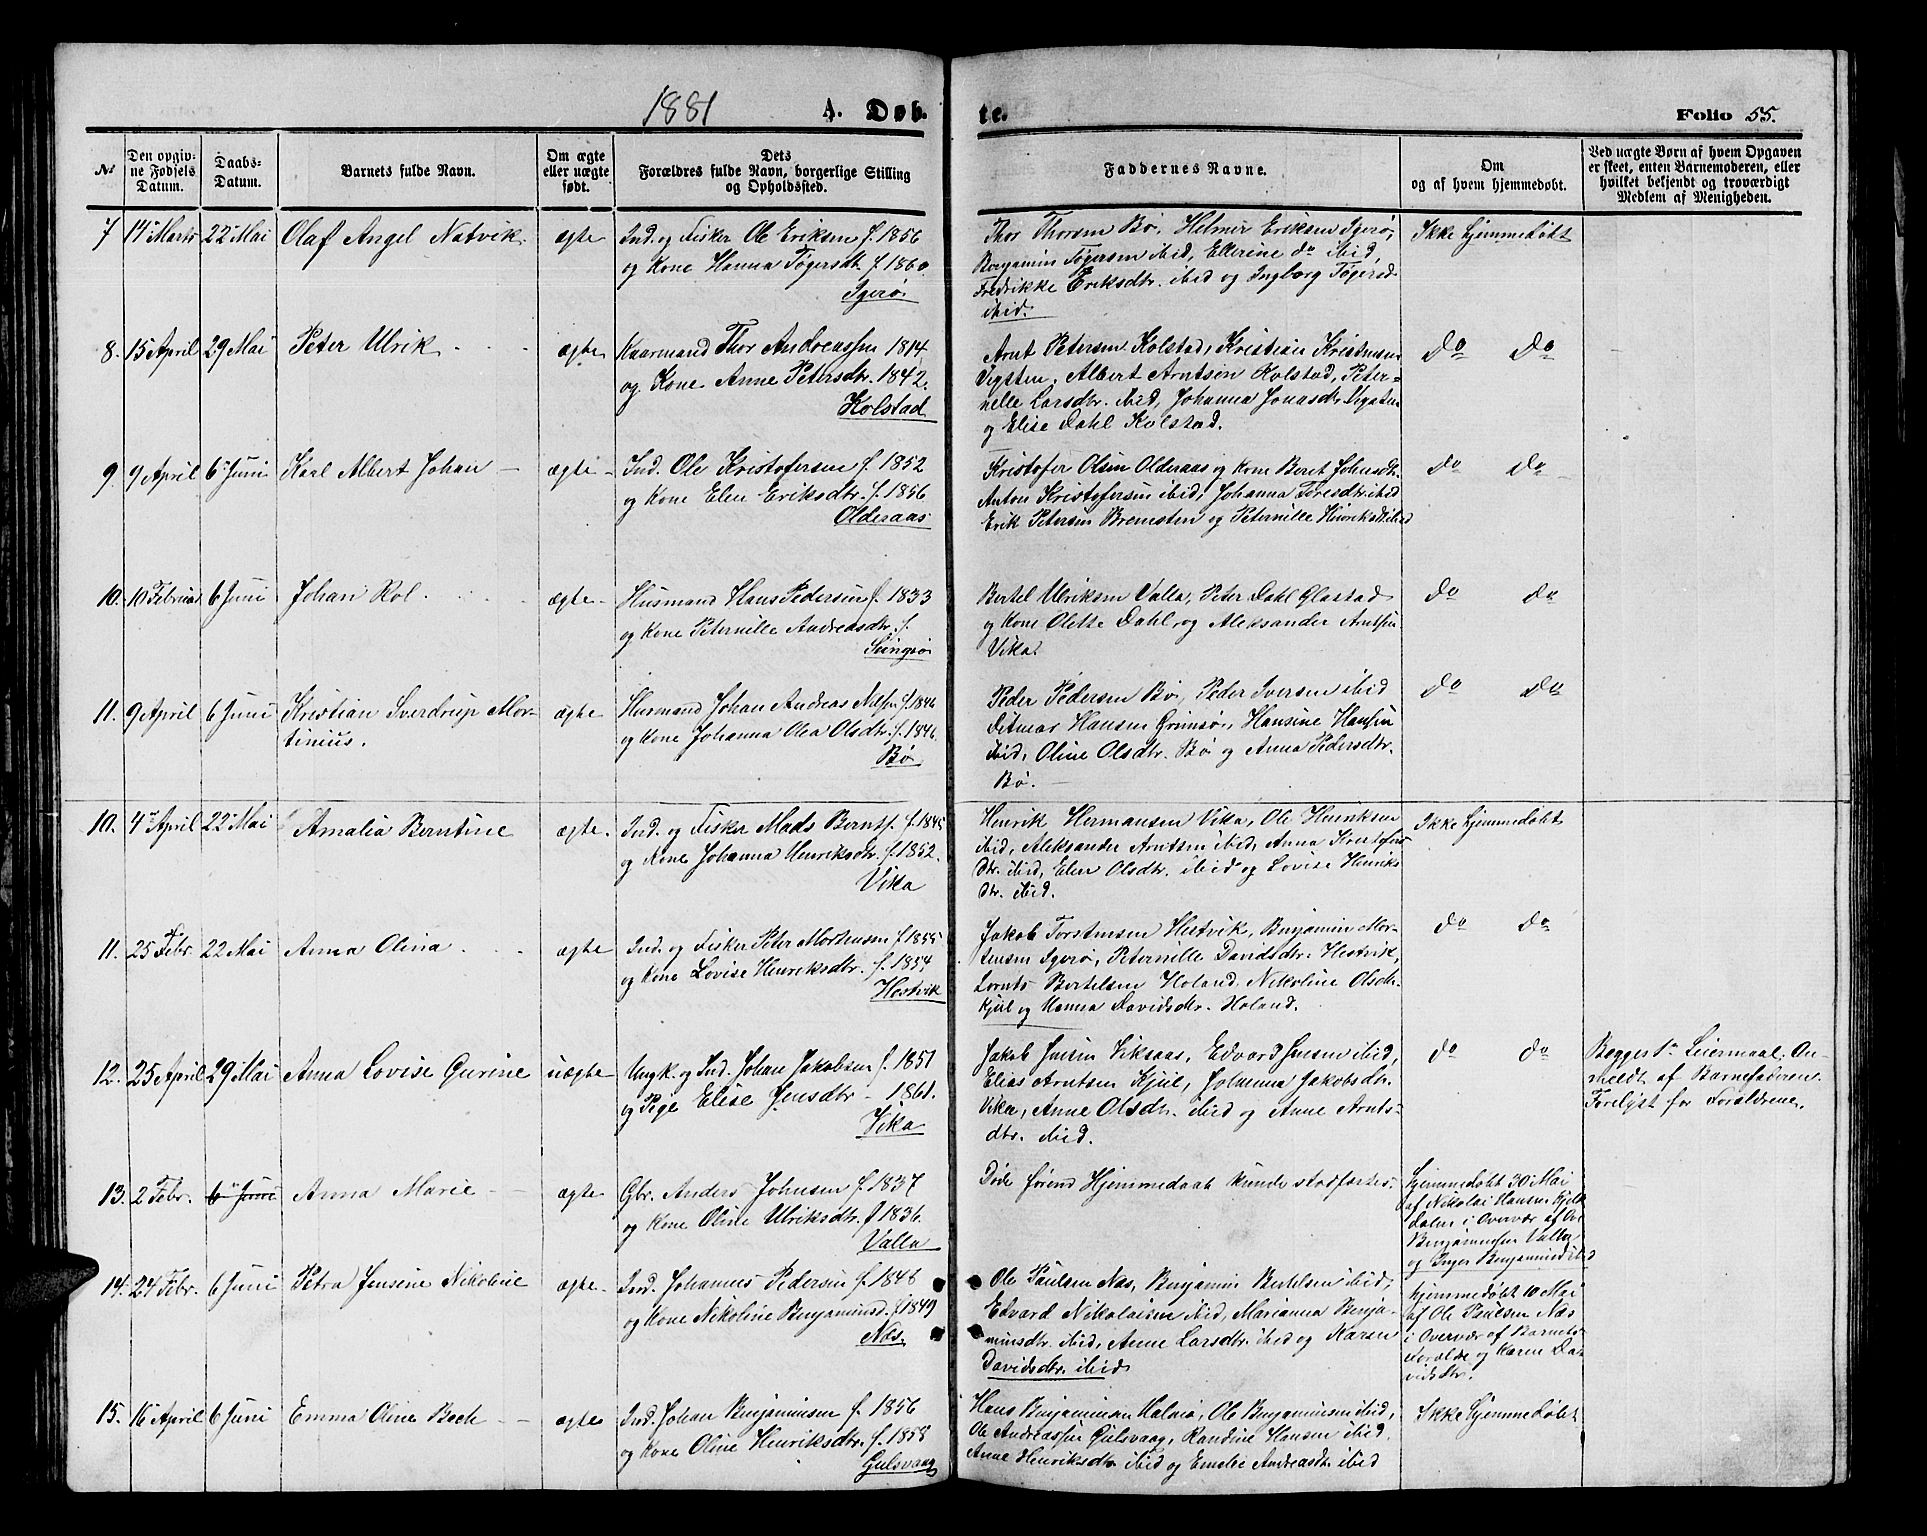 1881 A. Døb. te. Folio 55.
№
Den opgiv-
ne Fødsels
Datum.
Daabs-
Datum.
Barnets fulde Navn.
Om ægte
eller uægte
født.
Dets
Forældres fulde Navn, borgerlige Stilling
og Opholdssted.
Faddernes Navne.
Om
og af hvem hjemmedøbt.
Ved uægte Børn af hvem Opgaven
er skeet, enten Barnemoderen, eller
hvilket bekjendt og troværdigt
Medlem af Menigheden.
7 14 Marts 22 Mai Olaf Angel Natvik. ægte
Ind. og Fisker Ole Eriksen f. 1856
og Kone Hanna Tøgersdt. f. 1860.
Igerø.
Thor Thorsen Bø, Helmer Eriksen Igerø,
Benjamin Tøgersen ibid, Ellerine do ibid,
Fredrikke Eriksdtr. ibid og Ingborg Tøgersd.
ibid.
Ikke hjemmedøbt
8. 15 April 29 Mai Peter Ulrik ægte
Kaarmand Thor Andreassen 1814
og Kone Anne Petersdtr. 1842.
Kolstad
Arnt Petersen Kolstad, Kristian Kristensen
Vigsten, Albert Arntsen Kolstad, Peter-
nelle Larsdtr. ibid, Johanna Jonasdtr. Vigsten
og Elise Dahl Kolstad.
do do
9. 9 April 6 Juni Karl Albert Johan — ægte
Ind. Ole Kristofersen f. 1852
og Kone Elen Eriksdtr. f. 1856
Olderaas
Kristofer Olsen Olderaas og Kone Beret Johnsdt.
Anton Kristofersen ibid, Johanna Toresdtr. ibid
Erik Petersen Bremsten og Peternille Henriksdt. ibid
do do
10. 10 Februar 6 Juni Johan Rol. ægte
Husmand Hans Pedersen f. 1833
og Kone Peternille Andreasdtr. f.
Bertel Ulriksen Valla, Peter Dahl Glastad
og Kone Olette Dahl, og Aleksander Arntsen
Vika.
do do
11. 9 April 6 Juni Kristian Sverdrup Mor-
tinius. ægte
Husmand Johan Andreas Nilsen f. 1846
og Kone Johanna Olea Olsdtr. f. 1846.
Bø
Peder Pedersen Bø, Peder Iversen ibid
Ditmar Hansen Grimsø, Hansine Hansen
ibid, Oline Olsdtr. Bø og Anna Pedersdtr.
Bø.
do do
10. 4 April 22 Mai Amalia Berntine ægte.
Ind. og Fisker Mads Bernts. f. 1845
og Kone Johanna Henriksdtr. f. 1852.
Vika
Henrik Hermansen Vika, Ole Henriksen
ibid, Aleksander Arntsen ibid, Anna Kristofers
dtr. ibid, Elen Olsdtr. ibid og Lovise Henriks
dtr. ibid.
Ikke hjemmedøbt
11. 25 Febr. 22 Mai Anna Olina ægte
Ind. og Fisker Peter Mortensen f. 1855
og Kone Lovise Henriksdtr. f. 1854
Hestvik
Jakob Torstensen Hestvik, Benjamin Mor-
tensen Igerø, Peternille Davidsdtr. Hestvik,
Lornts Bertelsen Holand, Nikoline Olsdtr.
Kjul og Hanna Davidsdtr. Holand.
do do
12. 25 April 29 Mai Anna Lovise Gurine uægte
Ungk. og Ind. Johan Jakobsen f. 1851
og Pige Elise Jensdtr — 1861.
Vika
Jakob Jensen Viksaas, Edvard Jensen ibid,
Elias Arntsen Kjul, Johanna Jakobsdtr.
Vika, Anne Olsdtr. ibid og Anne Arnts-
dtr. ibid.
do do
Begges 1te Leiermaal. An-
meldt af Barnefaderen.
Forelyst for Forældrene.
13. 2 Febr. 6 Juni Anna Marie — ægte
Gbr. Anders Johnsen f. 1837
og Kone Oline Ulriksdtr. f 1836.
Valla
Døde førend Hjemmedaab kunde stadfæstes.
Hjemmedøbt 30 Mai
af Nikolai Hansen
i Overvær af Ole
Benjaminsen Valla
og Inger Benjaminsd. ibid
14. 24 Febr. 6 Juni Petra Jensine Nikoline ægte.
Ind. Johannes Pedersen f. 1848
og Kone Nikoline Benjaminsd. f 1849
Næs.
Ole Paulsen Næs, Benjamin Bertelsen ibid,
Edvard Nikolaisen ibid, Marianna Benja-
minsdtr. ibid, Anne Larsdtr. ibid og Karen
Davidsdtr. ibid
Hjemmedøbt 10 Mai
af Ole Paulsen Næs
i Overvær af Barnets
Forældre og Karen Da-
vidsdtr.
15. 16 April 6 Juni Emma Oline Bech — ægte
Ind. Johan Benjaminsen f. 1856
og Kone Oline Henriksdtr. f. 1858
Gulsvaag
Hans Benjaminsen Halmø, Ole Benjaminsen ibid,
Ole Andreassen Gulsvaag, Randine Hansen ibid.
Anne Henriksdtr. ibid og Emelie Andreasdtr. ibid
Ikke hjemmedøbt